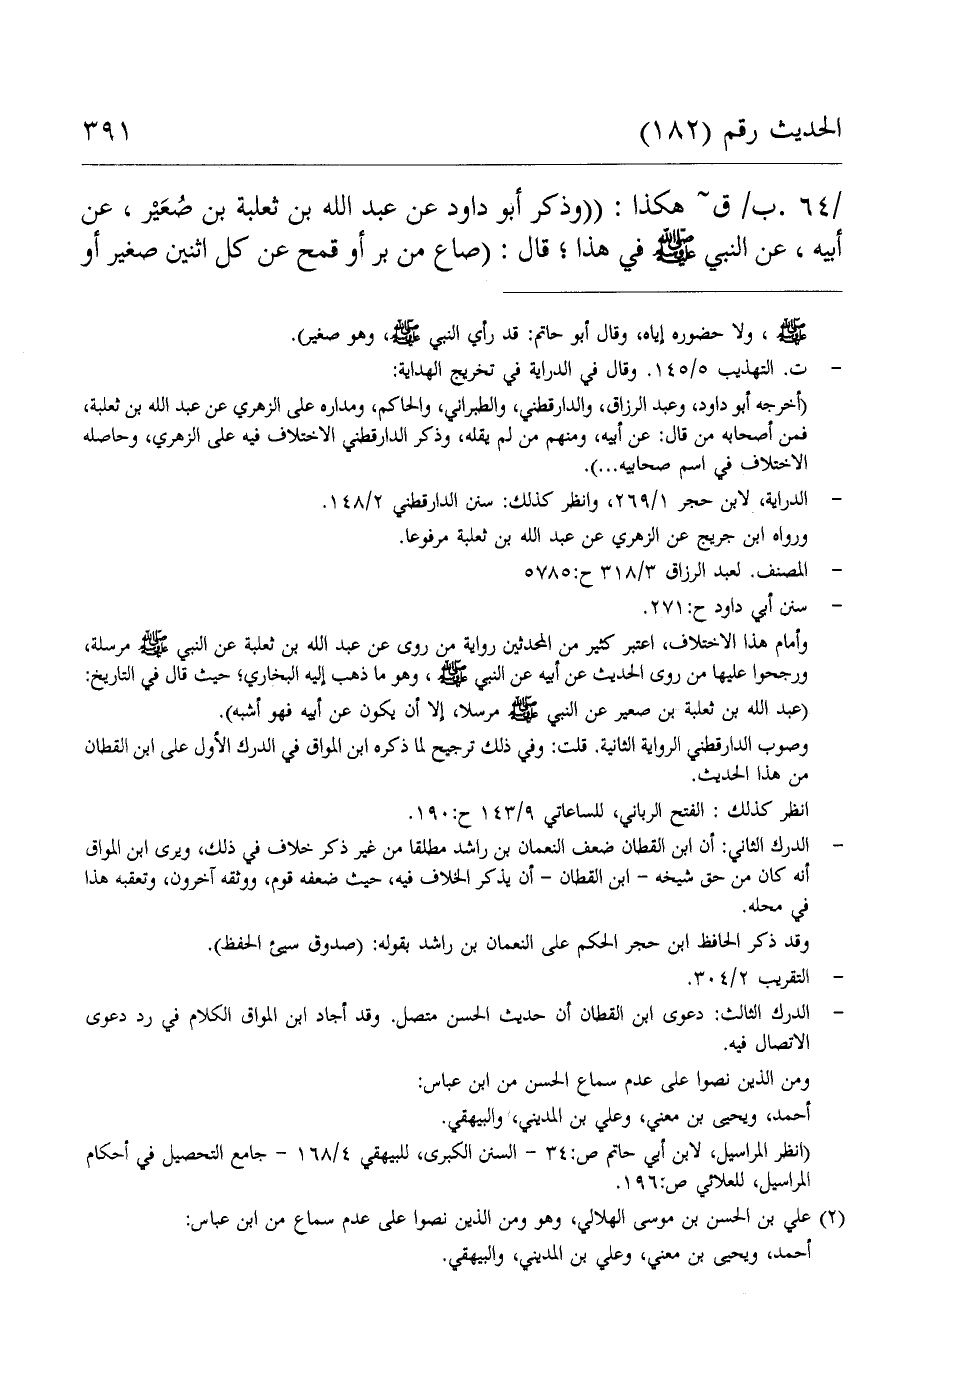 الحديث رقم (١٨٢) ٣٩١
/٦٤ .ب/ ق~ هكذا : ((وذكر أبو داود عن عبد الله بن ثعلبة بن صُعَيْر ، عن
أبيه ، عن النبي ﷺ في هذا ؛ قال : (صاع من بر أو قمح عن كل اثنين صغير أو
ﷺ ، ولا حضوره إياه، وقال أبو حاتم: قد رأي النبي ﷺ، وهو صغير).
- ت. التهذيب ١٤٥/٥. وقال في الدراية في تخريج الهداية:
(أخرجه أبو داود، وعبد الرزاق، والدارقطني، والطبراني، والحاكم، ومداره على الزهري عن عبد الله بن ثعلبة،
فمن أصحابه من قال: عن أبيه، ومنهم من لم يقله، وذكر الدارقطني الاختلاف فيه على الزهري، وحاصله
الاختلاف في اسم صحابيه...).
- الدراية، لابن حجر ٢٦٩/١، وانظر كذلك: سنن الدارقطني ١٤٨/٢.
ورواه ابن جريج عن الزهري عن عبد الله بن ثعلبة مرفوعا.
- المصنف. لعبد الرزاق ٣١٨/٣ ح:٥٧٨٥
- سنن أبي داود ح:٢٧١.
وأمام هذا الاختلاف، اعتبر كثير من المحدثين رواية من روى عن عبد الله بن ثعلبة عن النبي ﷺ مرسلة،
ورجحوا عليها من روى الحديث عن أبيه عن النبي ﷺ ، وهو ما ذهب إليه البخاري؛ حيث قال في التاريخ:
(عبد الله بن ثعلبة بن صعير عن النبي ﷺ مرسلا، إلا أن يكون عن أبيه فهو أشبه).
وصوب الدارقطني الرواية الثانية. قلت: وفي ذلك ترجيح لما ذكره ابن المواق في الدرك الأول على ابن القطان
من هذا الحديث.
انظر كذلك : الفتح الرباني، للساعاتي ١٤٣/٩ ح:١٩٠.
- الدرك الثاني: أن ابن القطان ضعف النعمان بن راشد مطلقا من غير ذكر خلاف في ذلك، ويرى ابن المواق
أنه كان من حق شيخه - ابن القطان - أن يذكر الخلاف فيه، حيث ضعفه قوم، ووثقه آخرون، وتعقبه هذا
في محله.
وقد ذكر الحافظ ابن حجر الحكم على النعمان بن راشد بقوله: (صدوق سيئ الحفظ).
- التقريب ٣٠٤/٢.
- الدرك الثالث: دعوى ابن القطان أن حديث الحسن متصل. وقد أجاد ابن المواق الكلام في رد دعوى
الاتصال فيه.
ومن الذين نصوا على عدم سماع الحسن من ابن عباس:
أحمد، ويحيى بن معني، وعلي بن المديني، والبيهقي.
(انظر المراسيل، لابن أبي حاتم ص:٣٤ - السنن الكبرى، للبيهقي ١٦٨/٤ - جامع التحصيل في أحكام
المراسيل، للعلائي ص:١٩٦.
(٢) علي بن الحسن بن موسى الهلالي، وهو ومن الذين نصوا على عدم سماع من ابن عباس:
أحمد، ويحيى بن معني، وعلي بن المديني، والبيهقي.